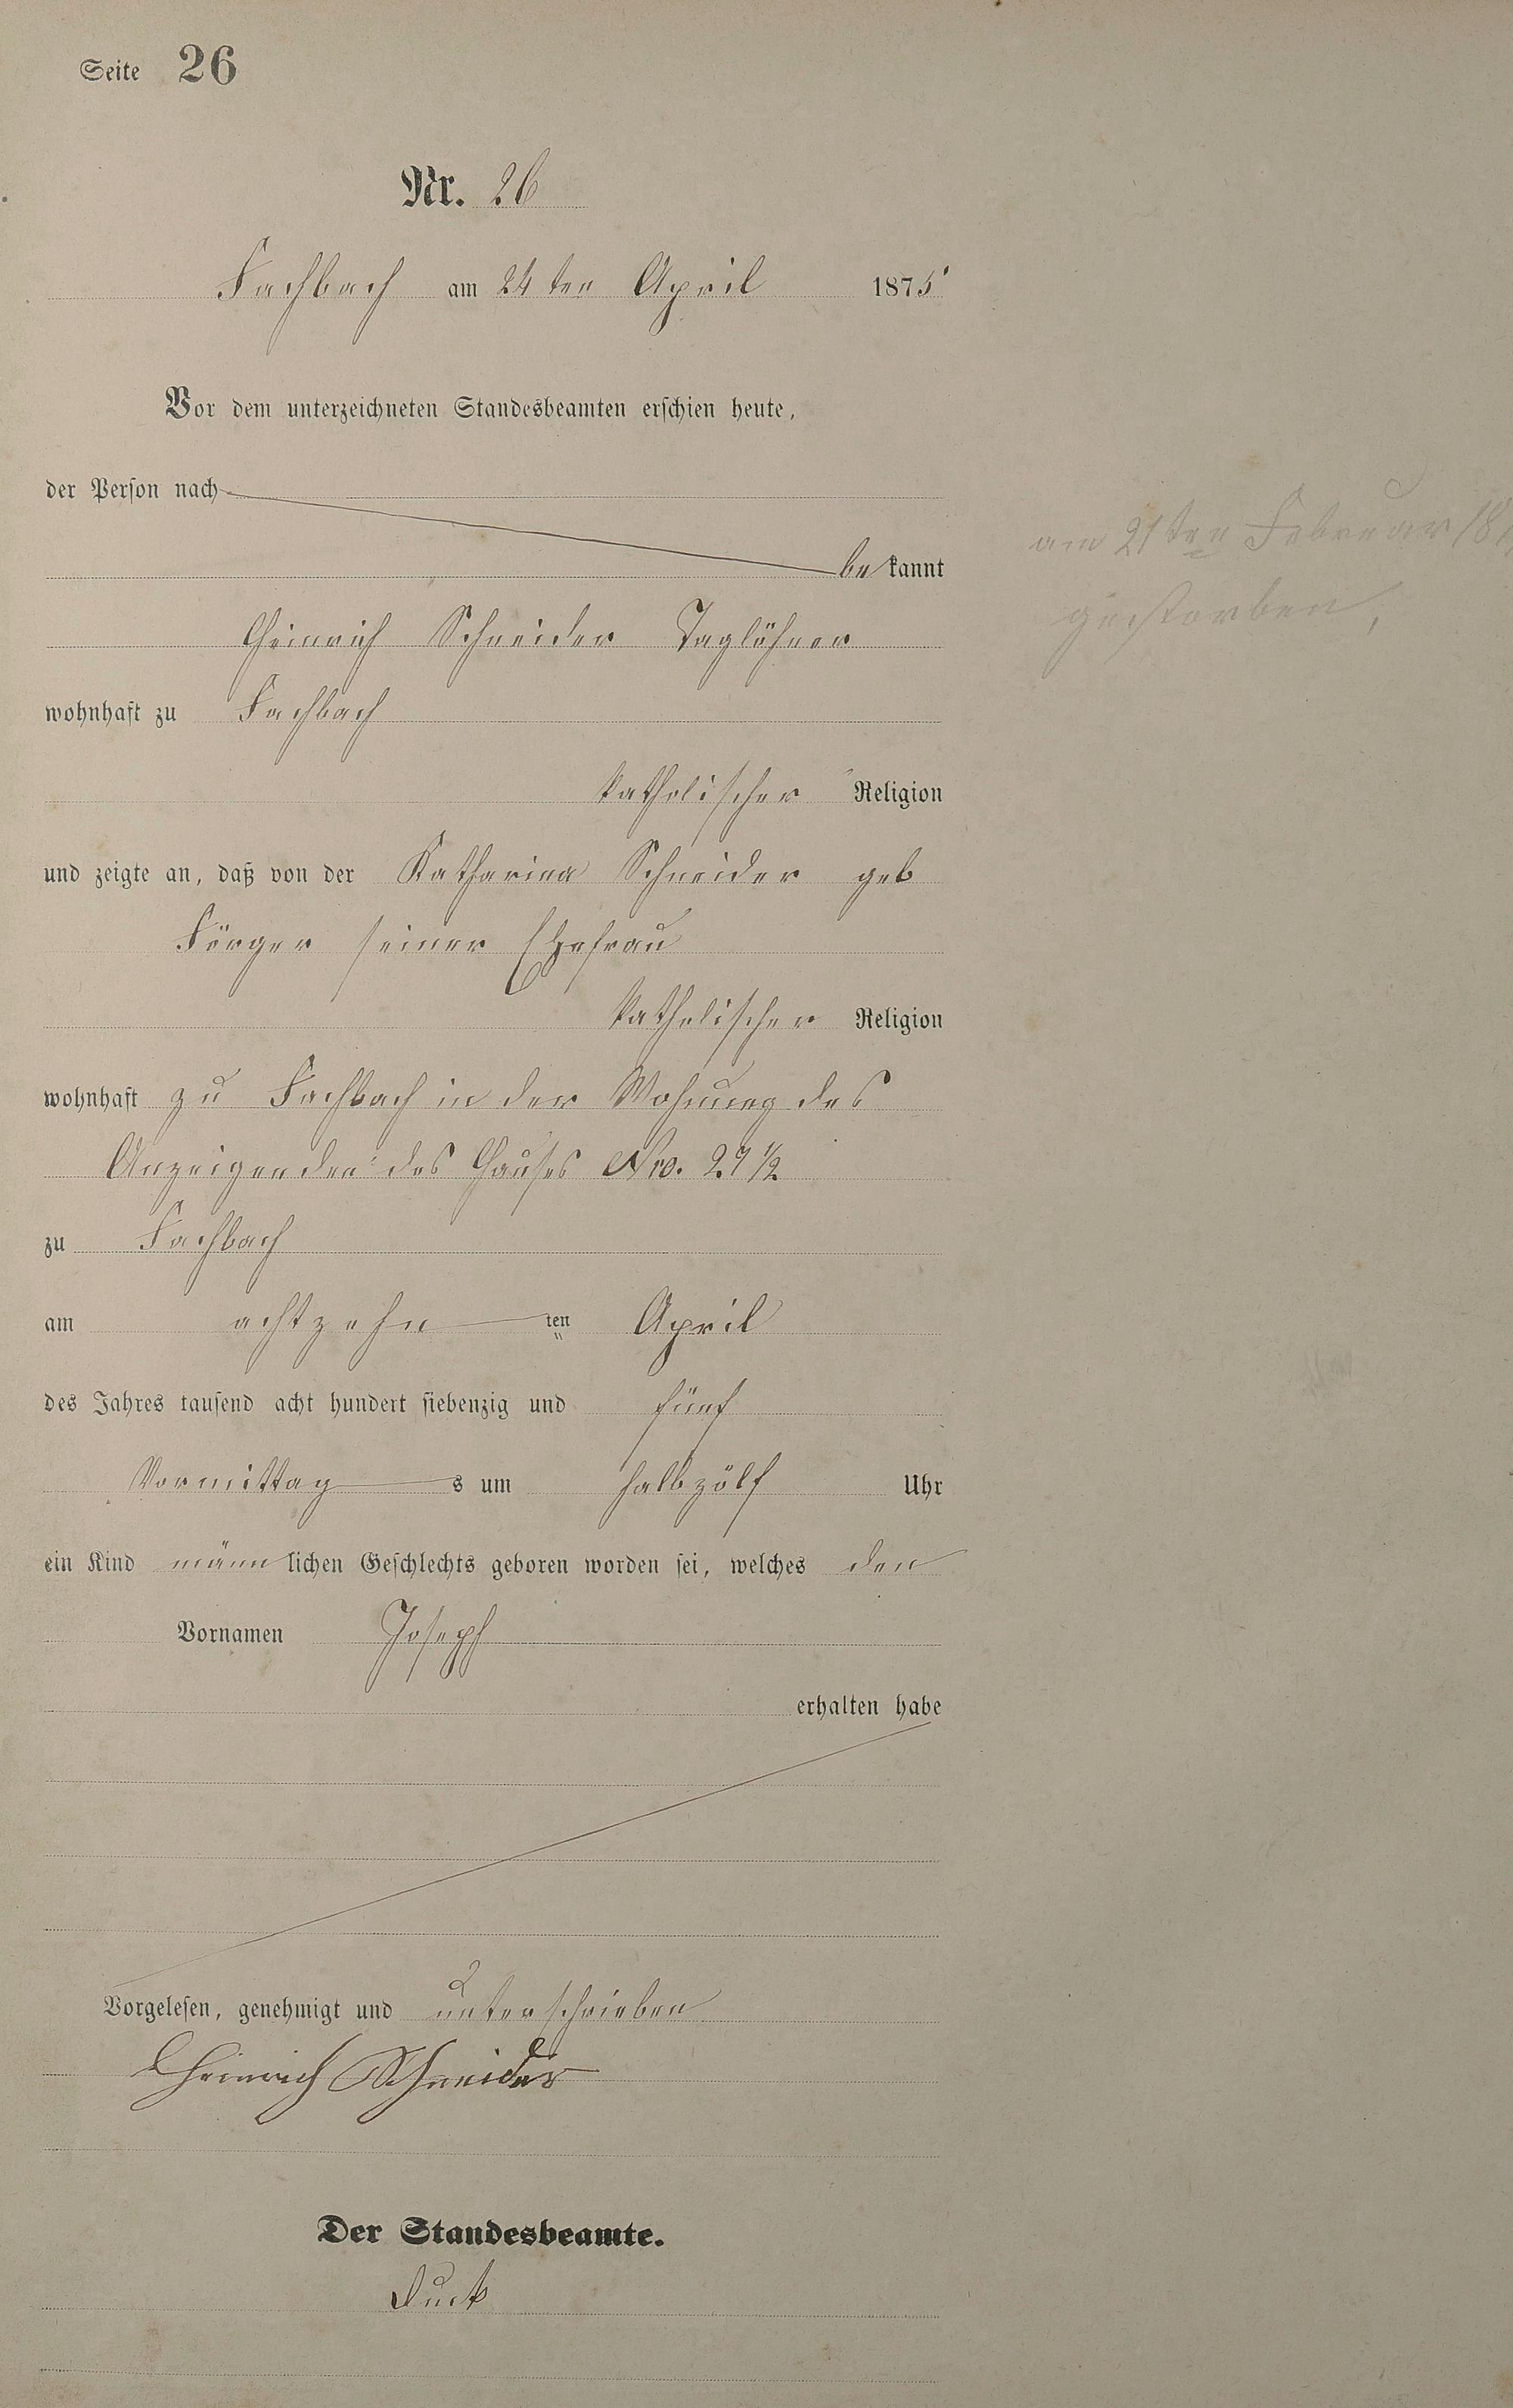 Seite 26
Nr. 26
Fachbach am 24ten April 1875
Vor dem unterzeichneten Standesbeamten erschien heute,
der Person nach
be kannt
Heinrich Schneider Taglöhner
wohnhaft zu Fachbach
katholischer Religion
und zeigte an, daß von der Katharina Schneider geb
Förger seiner Ehefrau
katholischer Religion
wohnhaft zu Fachbach in der Wohnung des
Anzeigenden des Hauses Nro. 27 1/2
zu Fachbach
am achtzehn ten April
des Jahres tausend acht hundert siebenzig und fünf
Vormittag s um halbzölf Uhr
ein Kind männ lichen Geschlechts geboren worden sei, welches den
Vornamen Joseph
erhalten habe
Vorgelesen, genehmigt und unterschrieben
Heinrich Schneider
Der Standesbeamte.
am 21ten Februar
gestorben,